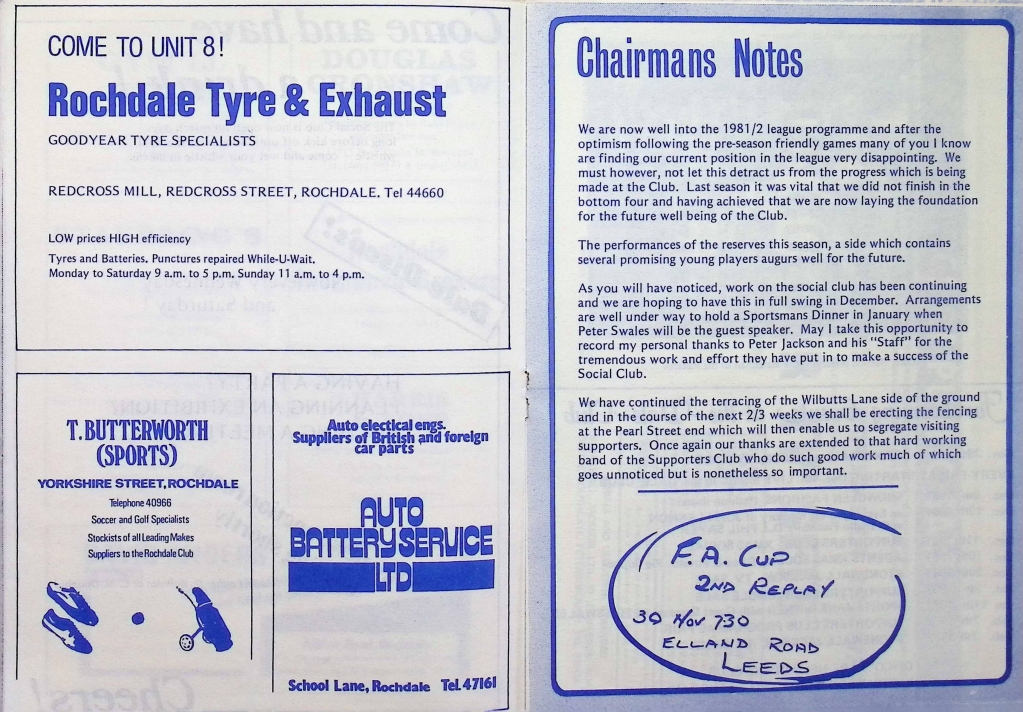 COME TO UNIT 8!
Rochdale Tyre & Exhaust
GOODYEAR TYRE SPECIALISTS
REDCROSS MILL, REDCROSS STREET, ROCHDALE. Tel 44660
LOW prices HIGH efficiency
Tyres and Batteries. Punctures repaired While-U-Wait.
Monday to Saturday 9 a.m. to 5 p.m. Sunday 11 a.m. to 4 p.m.
T. BUTTERWORTH
(SPORTS)
YORKSHIRE STREET, ROCHDALE
Telephone 40966
Soccer and Golf Specialists
Stockists of all Leading Makes
Suppliers to the Rochdale Club
Auto electical engs.
Suppliers of British and foreign
car parts
AUTO
BATTERY SERVICE
LTD
School Lane, Rochdale Tel. 47161
Chairmans Notes
We are now well into the 1981/2 league programme and after the
optimism following the pre-season friendly games many of you I know
are finding our current position in the league very disappointing. We
must however, not let this detract us from the progress which is being
made at the Club. Last season it was vital that we did not finish in the
bottom four and having achieved that we are now laying the foundation
for the future well being of the Club.
The performances of the reserves this season, a side which contains
several promising young players augurs well for the future.
As you will have noticed, work on the social club has been continuing
and we are hoping to have this in full swing in December. Arrangements
are well under way to hold a Sportsmans Dinner in January when
Peter Swales will be the guest speaker. May I take this opportunity to
record my personal thanks to Peter Jackson and his "Staff" for the
tremendous work and effort they have put in to make a success of the
Social Club.
We have continued the terracing of the Wilbutts Lane side of the ground
and in the course of the next 2/3 weeks we shall be erecting the fencing
at the Pearl Street end which will then enable us to segregate visiting
supporters. Once again our thanks are extended to that hard working
band of the Supporters Club who do such good work much of which
goes unnoticed but is nonetheless so important.
F.A. CUP
2ND REPLAY
30 Nov 730
ELLAND ROAD
LEEDS